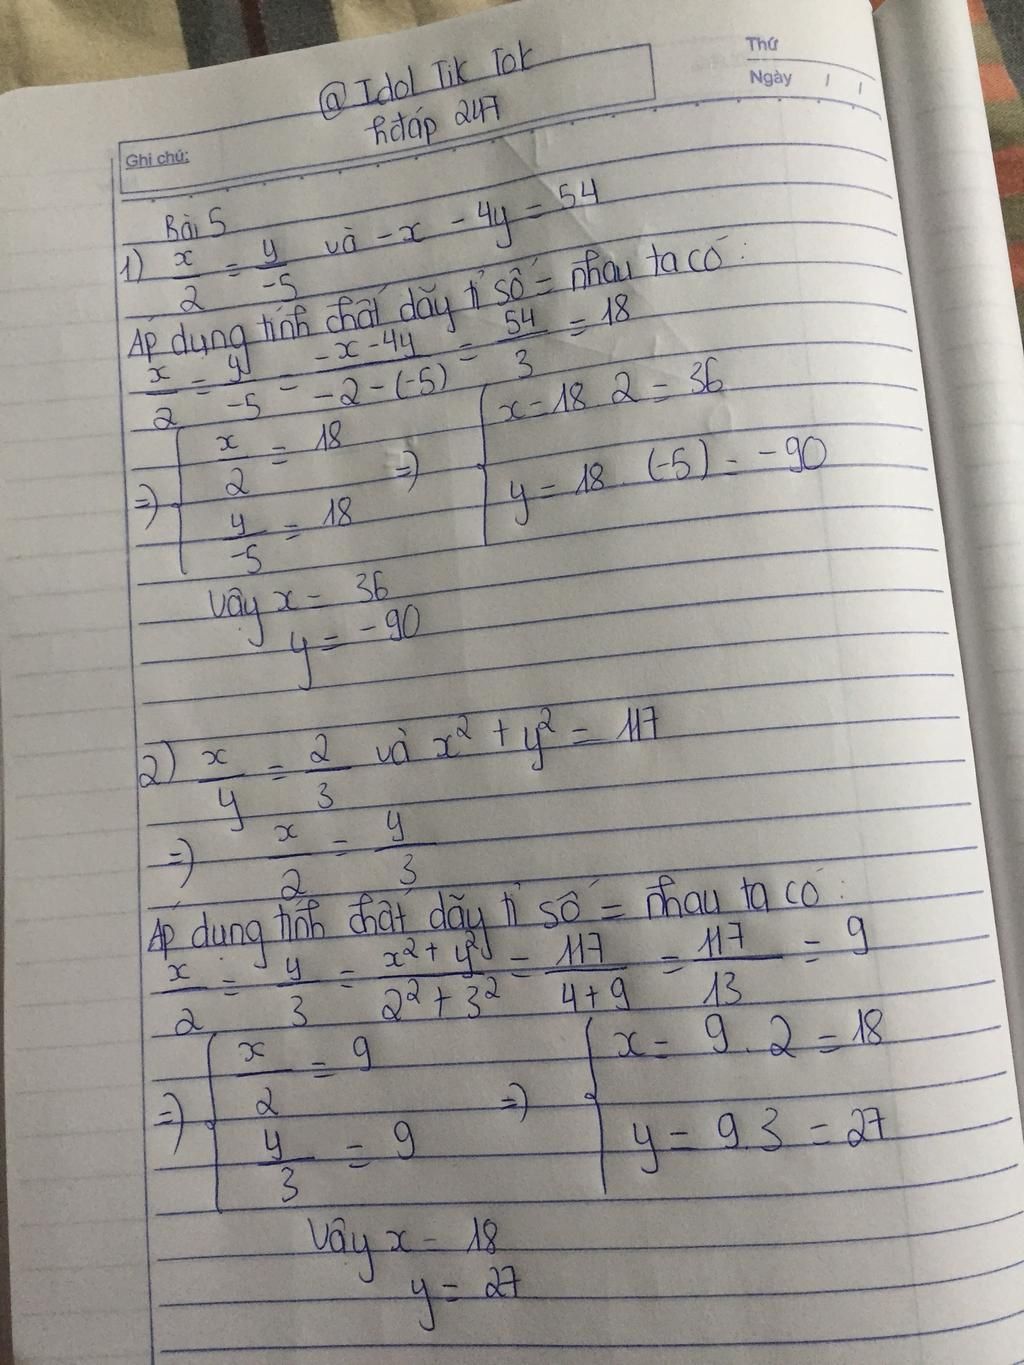 Thứ
Ngày / /
@ Idol Tik Tok
hđáp 247
Ghi chú:
Bài 5
1) x/2 = y/-5 và -x - 4y = 54
Áp dụng tính chất dãy tỉ số = nhau ta có:
x/2 = y/-5 = -x-4y/-2-(-5) = 54/3 = 18
=> { x/2 = 18 => { x = 18 . 2 = 36
y/-5 = 18 y = 18 . (-5) = -90
Vậy x = 36
y = -90
2) x/y = 2/3 và x² + y² = 117
=> x/2 = y/3
Áp dụng tính chất dãy tỉ số = nhau ta có:
x/2 = y/3 = x²+y²/2²+3² = 117/4+9 = 117/13 = 9
=> { x/2 = 9 => { x = 9 . 2 = 18
y/3 = 9 y = 9.3 = 27
Vậy x = 18
y = 27